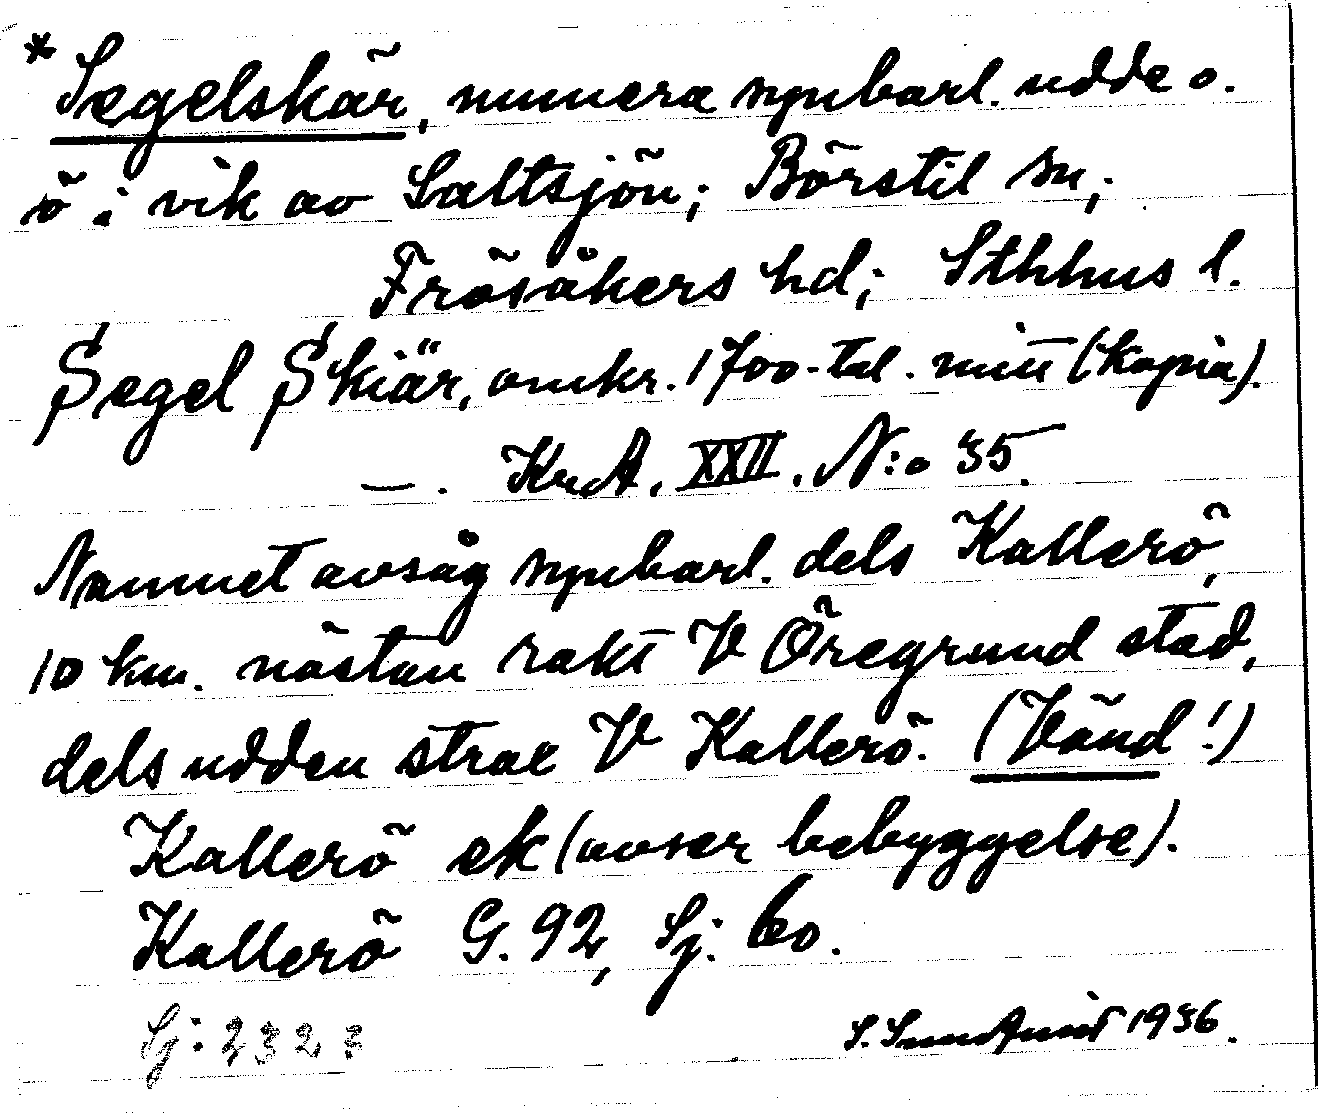 * Segelskär, numera synbarl. udde o.
ö i vik av Saltsjön; Börstil sn;
Frösåkers hd; Sthhus l.
Segel Skiär, omkr. 1700-tal. mitt (kopia).
—. KrA. XXII. N:o 35.
Namnet avsåg synbarl. dels Kallerö,
10 km. nästan rakt V Öregrund stad,
dels udden strax V Kallerö. (Vänd!)
Kallerö ek (avser bebyggelse).
Kallerö G. 92, Sj. bo.
Sj: 2323
S. Sundquist 1936.